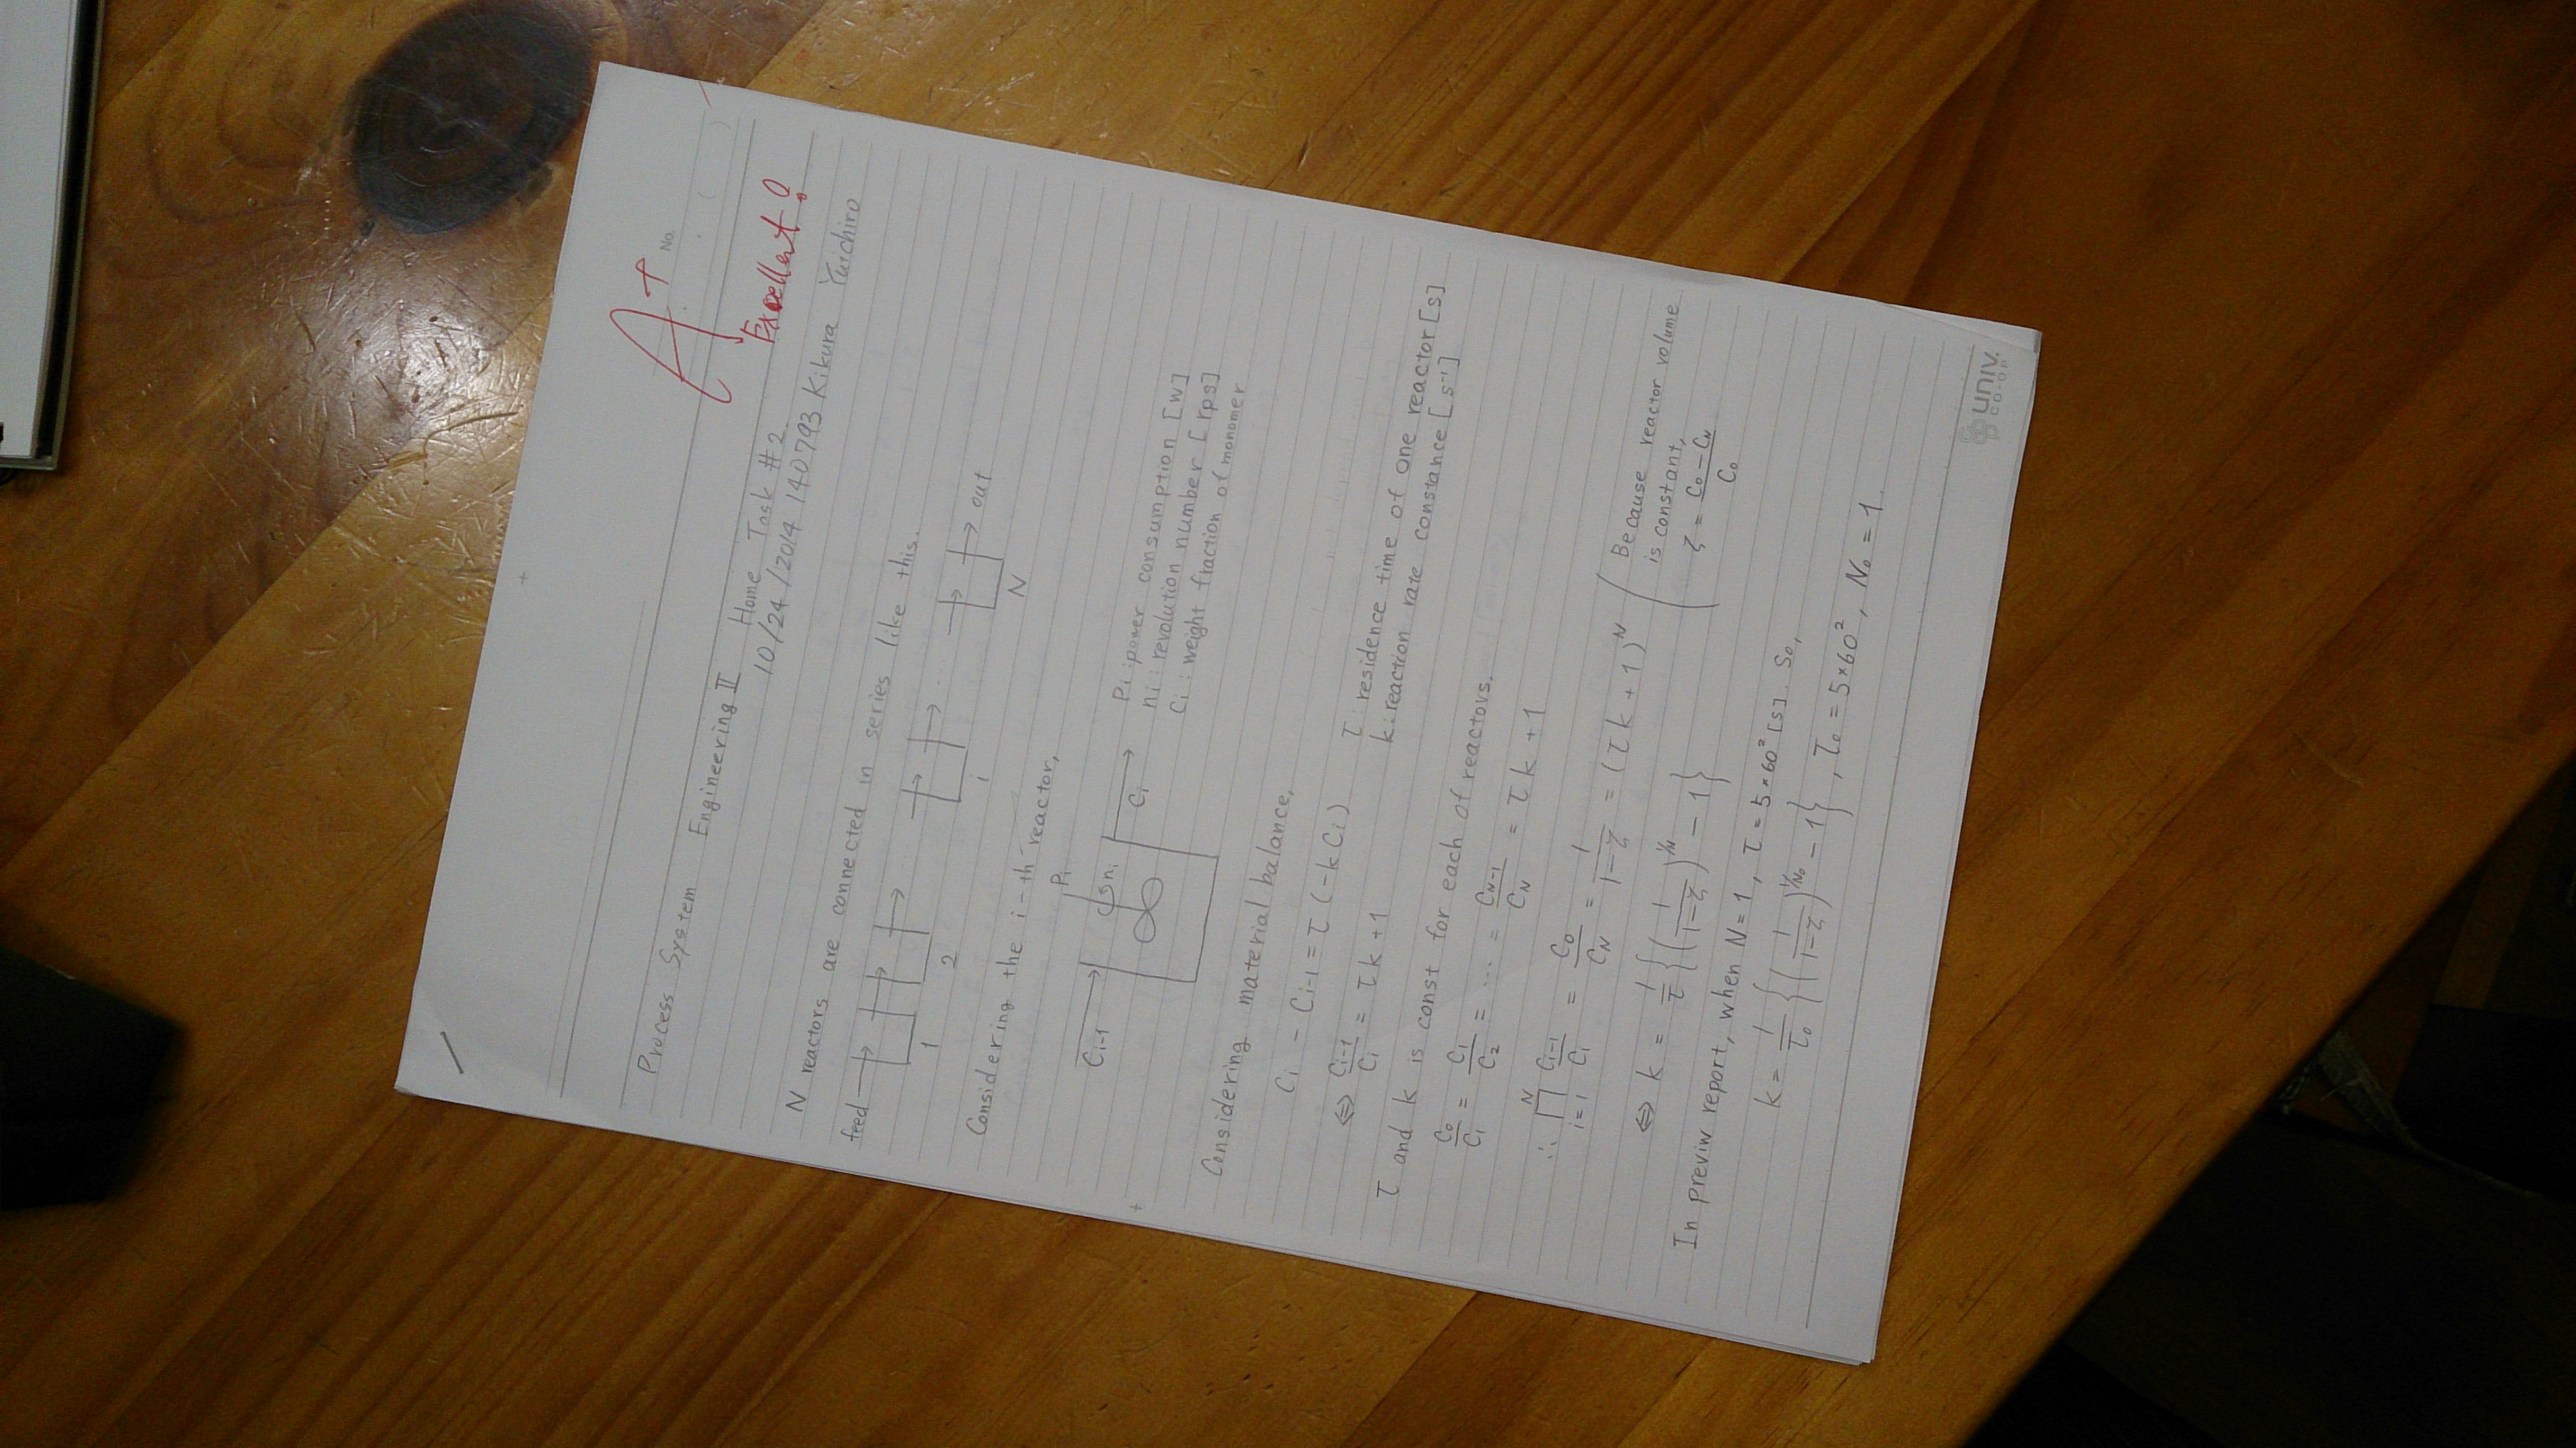 A+
No.
Process System Engineering II
Excellent!
Home Task #2
10/24/2014 140793 Kikura Yuichiro
N reactors are connected in series like this.
feed → → → ... → → ... → → out
1 2 i N
Considering the i-th reactor,
Pi
Ci-1 ni Ci
Pi : power consumption [w]
ni : revolution number [rps]
Ci : weight fraction of monomer
Considering material balance,
Ci - Ci-1 = τ (-k Ci)
⇔ Ci-1/Ci = τk + 1
τ : residence time of one reactor [s]
k : reaction rate constance [s⁻¹]
τ and k is const for each of reactors.
C0/C1 = C1/C2 = ... = CN-1/CN = τk + 1
∴ ∏ i=1 N Ci-1/Ci = C0/CN = 1/(1-ζ) = (τk + 1)^N
( Because reactor volume
is constant,
ζ = (C0 - CN)/C0
⇔ k = 1/τ {(1/(1-ζ))^1/N - 1}
In previw report, when N = 1, τ = 5×60² [s]. So,
k = 1/τ0 {(1/(1-ζ))^1/N0 - 1}, τ0 = 5×60², N0 = 1.
univ.
CO-OP